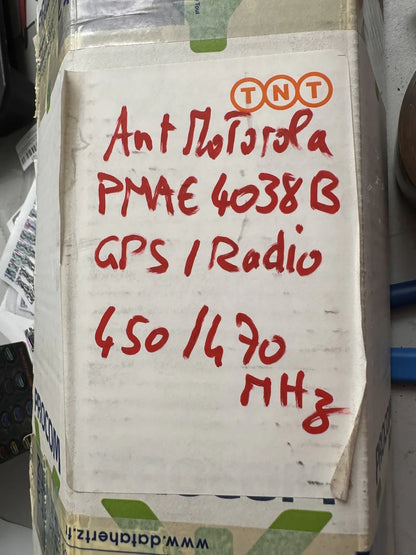 TNT
Ant Motorola
PMAE 4038B
GPS / Radio
450 / 470
MHz
PROCOM
www.datahertz.fr